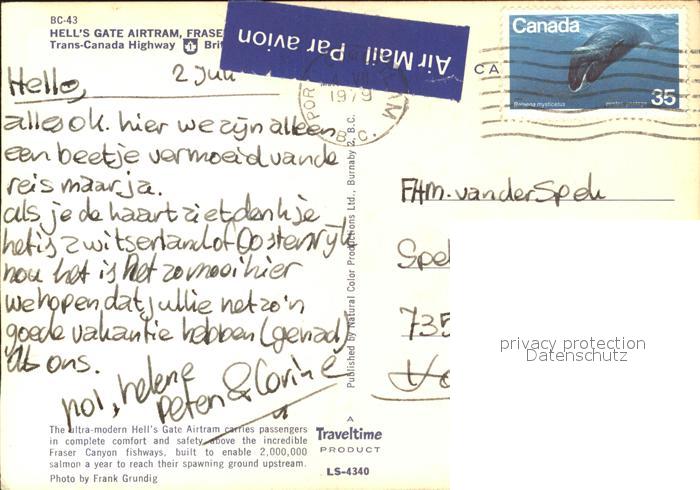 BC-43
HELL'S GATE AIRTRAM, FRASE
Trans-Canada Highway Brit
Air Mail Par avion
Canada
35
Balaena mysticetus
CA
1979
B.C.
Hello,
alles ok. hier we zijn alleen
een beetje vermoeid van de
reis maar ja.
als je de kaart ziet denk je
het is zwitserland of Oostenrijk
nou het is net zo mooi hier
we hopen dat jullie net zo'n
goede vakantie hebben (gehad)
als ons.
pol, helene
peter & Corine
F.H.M. van der Spek
Spe
735
privacy protection
Datenschutz
Published by Natural Color Productions Ltd., Burnaby 2, B.C.
The ultra-modern Hell's Gate Airtram carries passengers
in complete comfort and safety above the incredible
Fraser Canyon fishways, built to enable 2,000,000
salmon a year to reach their spawning ground upstream.
Photo by Frank Grundig
A
Traveltime
PRODUCT
LS-4340